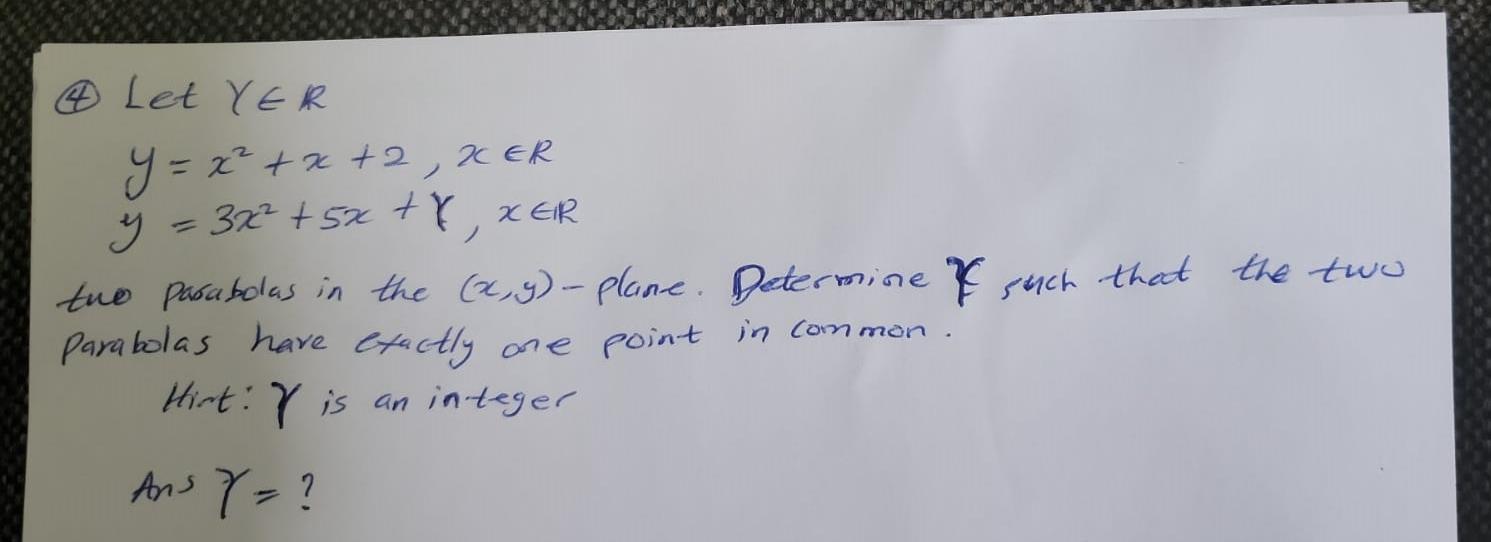 ④ Let γ ∈ ℝ
y = x² + x + 2, x ∈ R
y = 3x² + 5x + γ, x ∈ ℝ
two parabolas in the (x,y)-plane. Determine γ such that the two
parabolas have exactly one point in common.
Hint: γ is an integer
Ans γ = ?